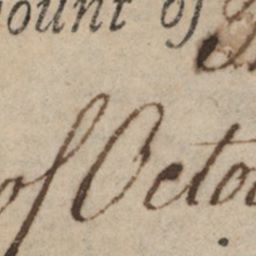 ount of
of Octo